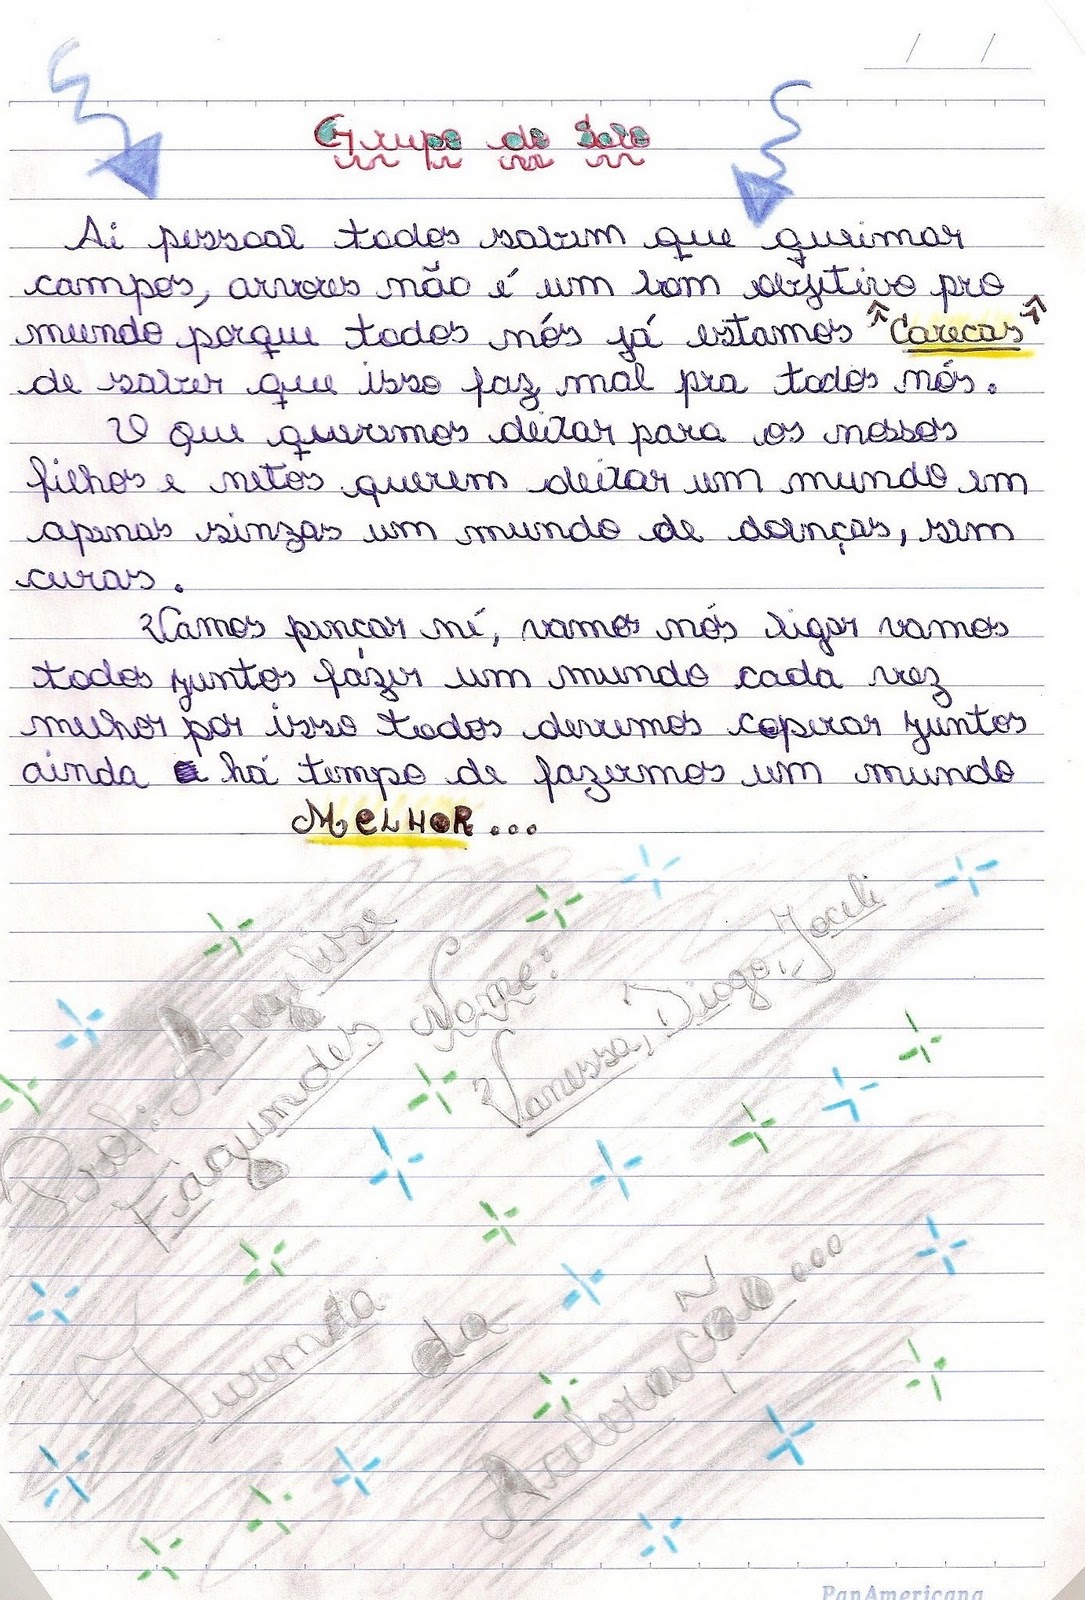 / /
Grupo do Solo
Ai pessoal todos sabem que queimar
campos, arvores não é um bom objetivo pro
mundo porque todos nós já estamos "Carecas"
de saber que isso faz mal pra todos nós.
O que queremos deixar para os nossos
filhos e netos querem deixar um mundo em
apenas sinzas um mundo de doenças, sem
curas.
Vamos pençar né, vamos nós ligar vamos
todos juntos fázer um mundo cada vez
melhor por isso todos devemos coperar juntos
ainda há tempo de fazermos um mundo
MELHOR...
Prof: Angelise
Fagundes
Nome:
Vanessa, Diogo, Joceli
Turma da
Aceleração...
PanAmericana